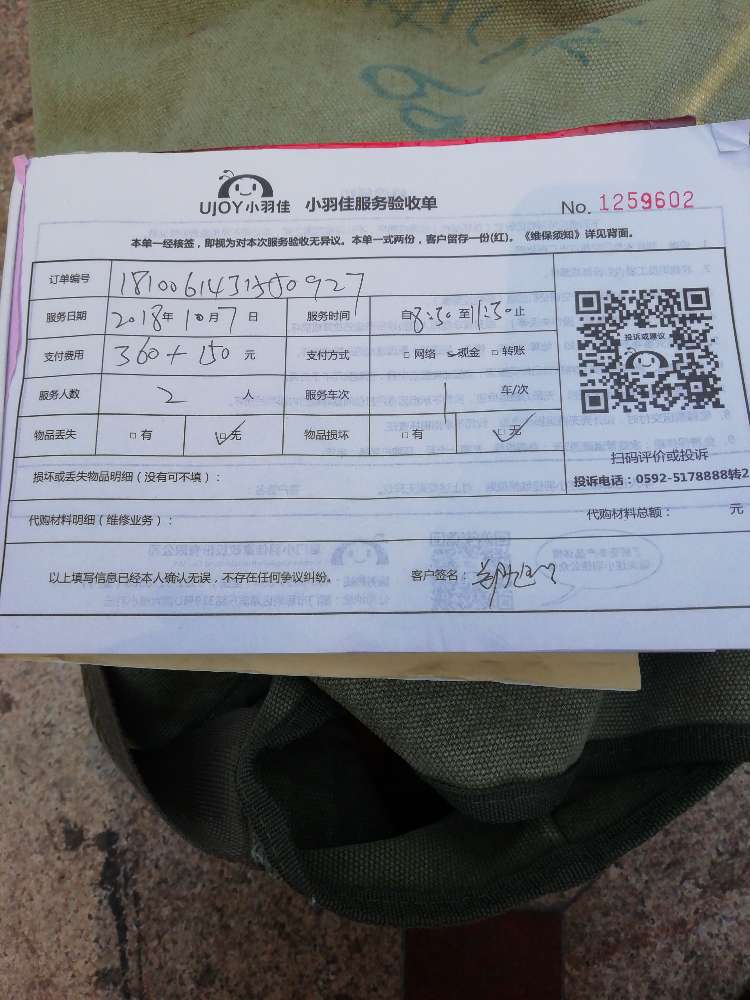 UJOY小羽佳 小羽佳服务验收单 No. 1259602
本单一经核签，即视为对本次服务验收无异议。本单一式两份，客户留存一份(红)。《维保须知》详见背面。
订单编号
服务日期 2018年 10月 7 日 服务时间 自8:30至11:30止
支付费用 360+150 元 支付方式 □ 网络 □ 现金 □ 转账
服务人数 2 人 服务车次 1 车/次
物品丢失 □ 有 □ 无 物品损坏 □ 有 □ 无
投诉或建议
扫码评价或投诉
投诉电话：0592-5178888转2
损坏或丢失物品明细（没有可不填）：
代购材料明细（维修业务）： 代购材料总额： 元
以上填写信息已经本人确认无误，不存在任何争议纠纷。 客户签名：